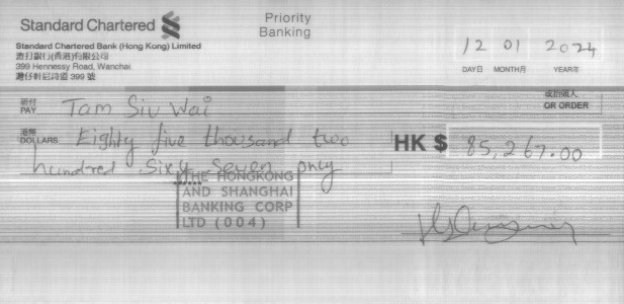 Standard Chartered
Priority
Banking
Standard Chartered Bank (Hong Kong) Limited
渣打銀行(香港)有限公司
399 Hennessy Road, Wanchai.
灣仔軒尼詩道 399 號
12 01 2024
DAY日 MONTH月 YEAR年
祈付
PAY Tam Siu Wai
或指定人
OR ORDER
港幣
DOLLARS Eighty five thousand two
hundred Sixy Seven only
HK $ 85,267.00
THE HONGKONG
AND SHANGHAI
BANKING CORP
LTD (004)